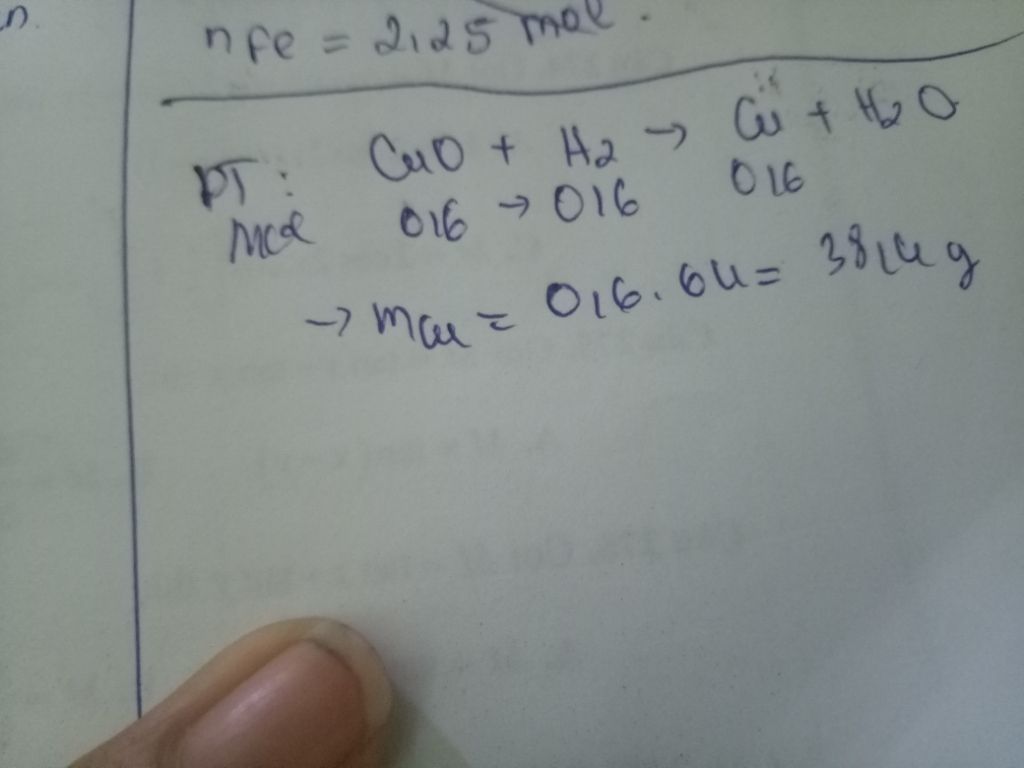 n.
nFe = 2,25 mol.
PT: CuO + H2 → Cu + H2O
mol 0,6 → 0,6 0,6
→ mCu = 0,6. 64 = 38,4 g